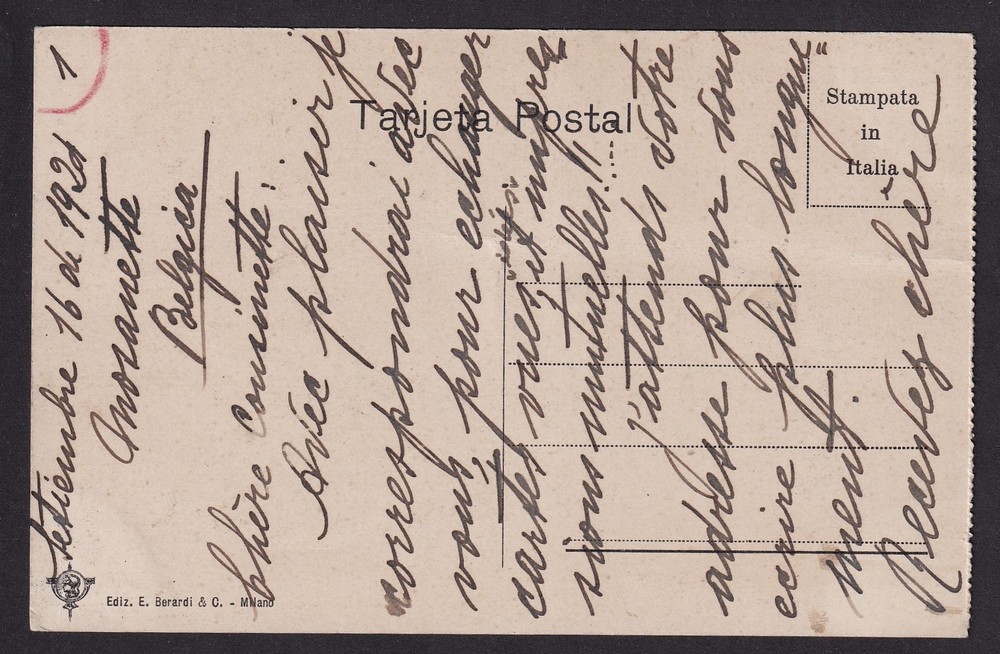 1
Setiembre 16 de 1921
Moranette
Belgica
Chère cousinette:
Avec plaisir je
correspondrai avec
vous, pour echanger
cartes vues, et impres"
sions mutuelles!
j'attends votre
adresse pour vous
ecrire plus longue"
ment.
Recevez chère
Tarjeta Postal
Stampata
in
Italia
Ediz. E. Berardi & C. - Milano